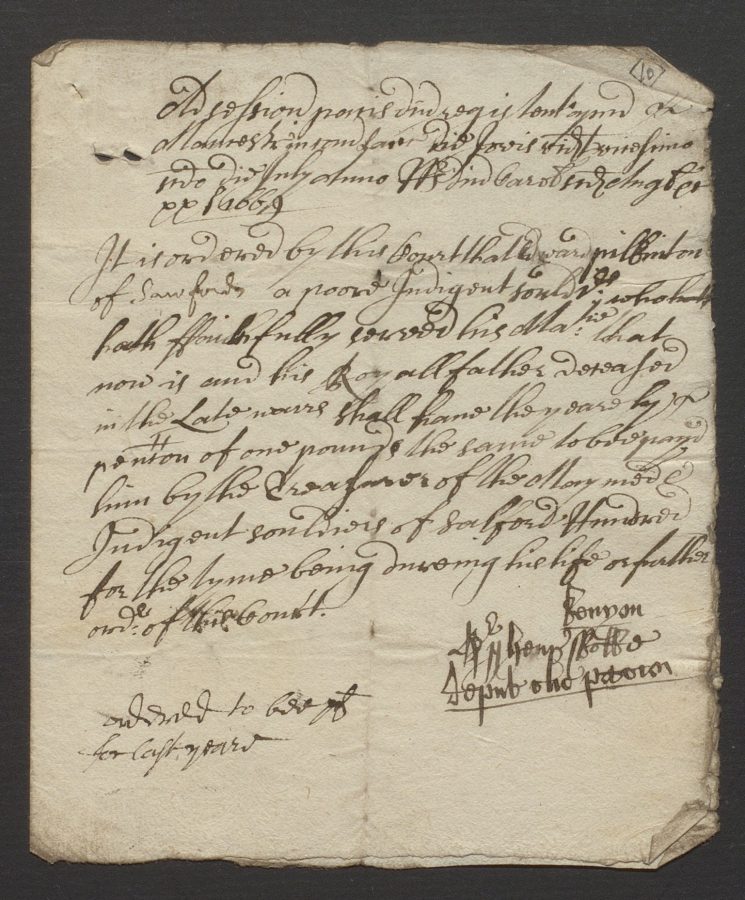 10
Ad session pacis dni regis tent apud
Manchestr in com Lanc die Jovis vicesimo
scdo die July anno RRs dni Caroli scdi Angl &c
xxj 1669
It is ordered by this Court that Edward Pilkinton
of a poore Indigent souldier who hath
hath ffaithfully served his Ma:tie that
now is and his Royall father deceased
in the Late warrs shall have the yearely
pention of one pounde the same to bee payd
him by the Treasurer of the Maymed &
Indigent souldiers of Salford Hundred
for the tyme being dureing his life or further
ordr. of this Court.
Kenyon
p
Deput cler pacis
ordered to bee pd
for last yeare